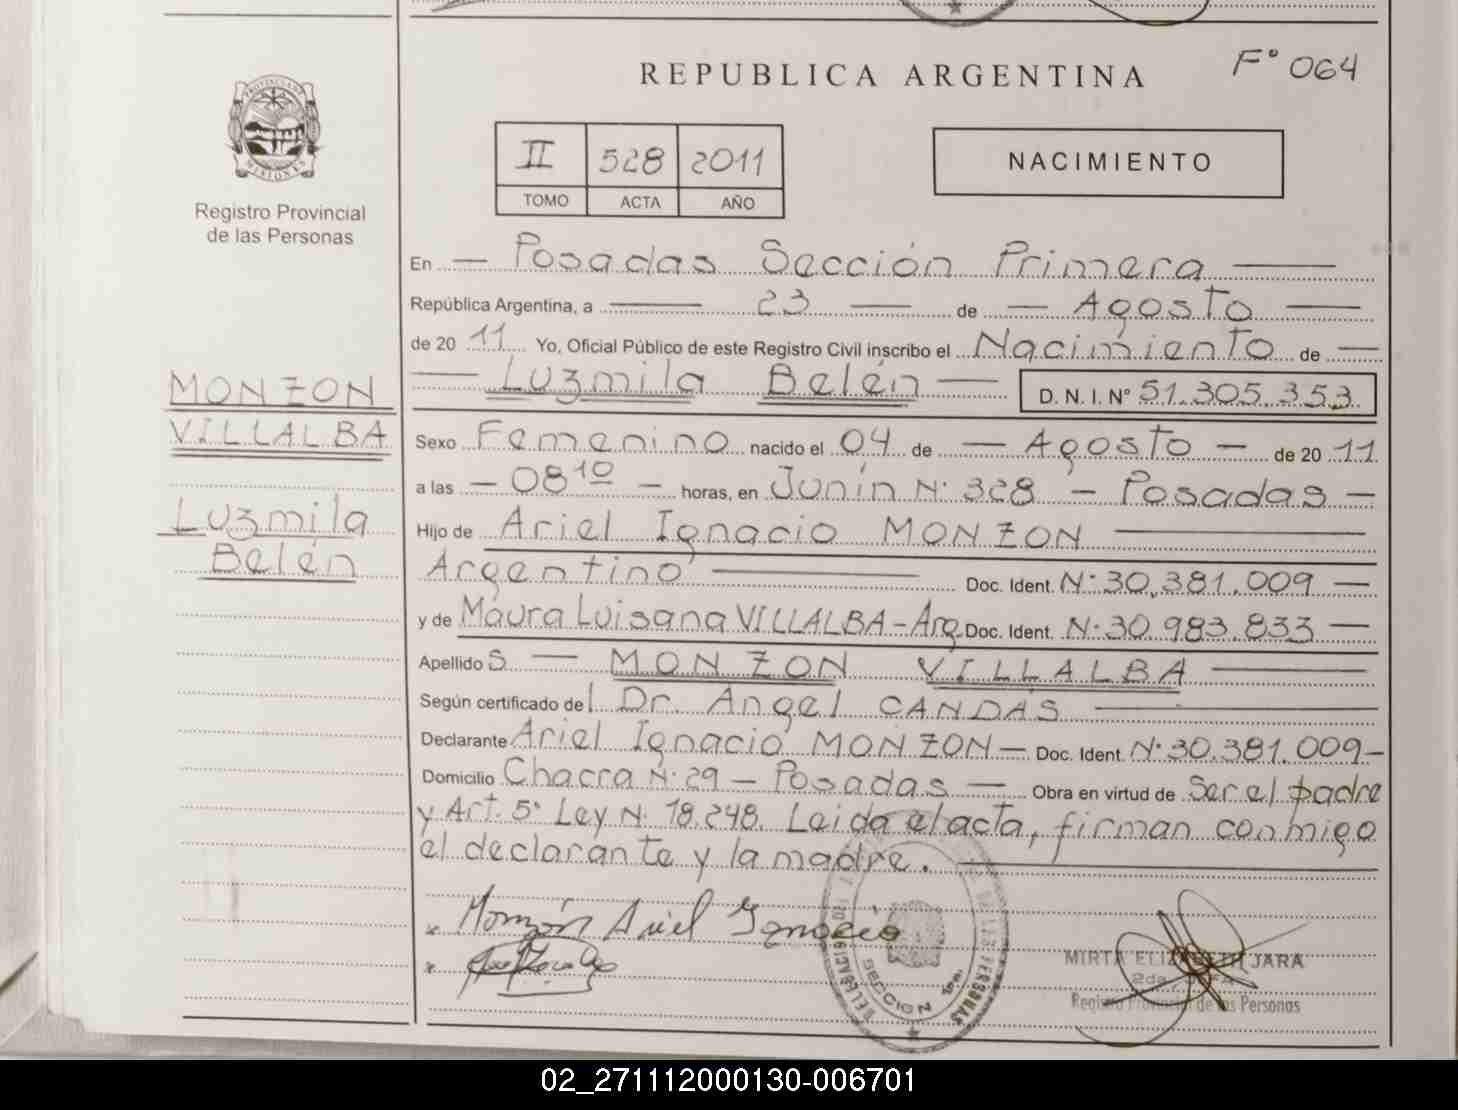 REPUBLICA ARGENTINA
F° 064
PROVINCIA DE
MISIONES
Registro Provincial
de las Personas
II 528 2011
TOMO ACTA AÑO
NACIMIENTO
En — Posadas Sección Primera —
República Argentina, a — 23 — de — Agosto —
de 20 11 Yo, Oficial Público de este Registro Civil inscribo el Nacimiento de —
— Luzmila Belén — D. N. I. N° 51.305.353
MONZON
VILLALBA
Luzmila
Belén
Sexo Femenino nacido el 04 de — Agosto — de 20 11
a las — 08 10 — horas, en Junín N° 328 — Posadas —
Hijo de Ariel Ignacio MONZON —
Argentino — Doc. Ident. N° 30.381.009 —
y de Maura Luisana VILLALBA - Arg. Doc. Ident. N° 30.983.833 —
Apellido s — MONZON VILLALBA —
Según certificado de l Dr. Angel CANDAS —
Declarante Ariel Ignacio MONZON — Doc. Ident. N° 30.381.009 -
Domicilio Chacra N° 29 — Posadas — Obra en virtud de Ser el padre
y Art. 5° Ley N° 18.248. Leida el acta, firman conmigo
el declarante y la madre. —
x Monzón Ariel Ignacio
x
SECCION 1ra.
MIRTA ELIZABETH JARA
Registro Provincial de las Personas
02_271112000130-006701